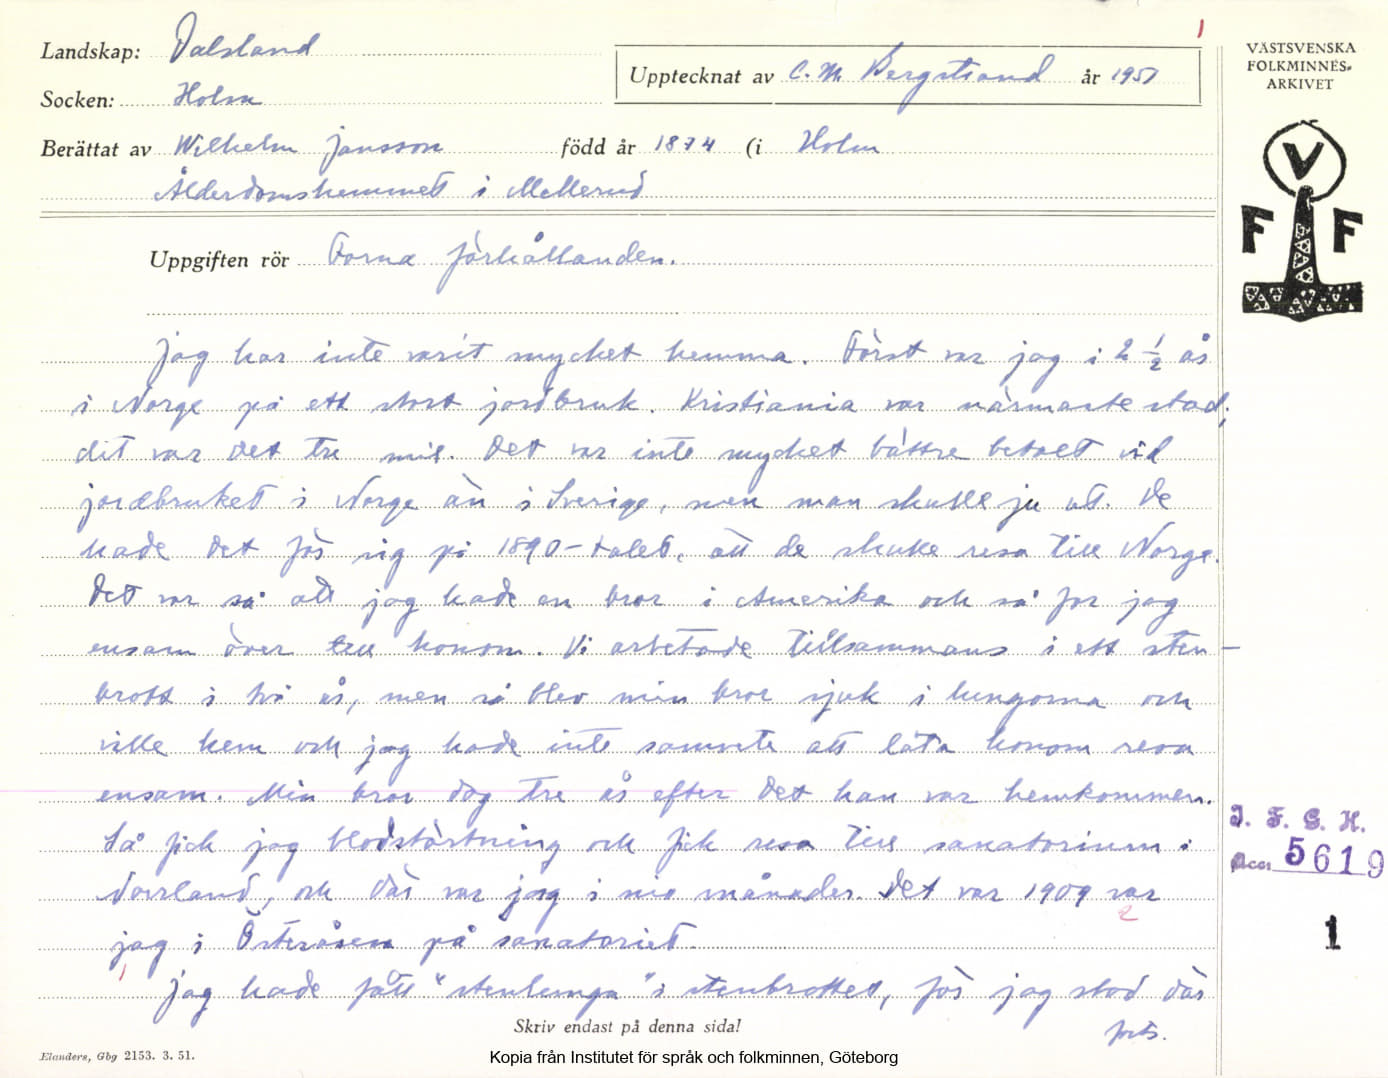 1
Landskap: Dalsland
VÄSTSVENSKA
FOLKMINNES-
ARKIVET
Upptecknat av C. M. Bergstrand år 1951
Socken: Holm
Berättat av Wilhelm Jansson född år 1874 (i Holm
Ålderdomshemmet i Mellerud
V
F F
Uppgiften rör Forna förhållanden.
Jag har inte varit mycket hemma. Först var jag i 2 1/2 år
i Norge på ett stort jordbruk. Kristiania var närmaste stad,
dit var det tre mil. Det var inte mycket bättre betalt vid
jordbruket i Norge än i Sverige, men man skulle ju ut. De
hade det för sig på 1890-talet, att de skulle resa till Norge.
Det var så att jag hade en bror i Amerika och så for jag
ensam över till honom. Vi arbetade tillsammans i ett sten-
brott i två år, men så blev min bror sjuk i lungorna och
ville hem och jag hade inte samvete att låta honom resa
ensam. Min bror dog tre år efter det han var hemkommen.
Så fick jag blodstörtning och fick resa till sanatorium i
Norrland, och där var jag i nio månader. Det var 1909 var
2
jag i Österåsen på sanatoriet.
1
Jag hade fått "stenlunga" i stenbrottet, för jag stod där
forts.
I. F. G. H.
Acc. 5619
1
Skriv endast på denna sida!
Elanders, Gbg 2153. 3. 51.
Kopia från Institutet för språk och folkminnen, Göteborg